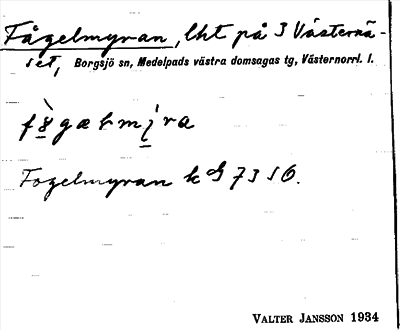 Fågelmyran, lht på 3 Västernä-
set, Borgsjö sn, Medelpads västra domsagas tg, Västernorrl. l.
Fogelmyran k
VALTER JANSSON 1934